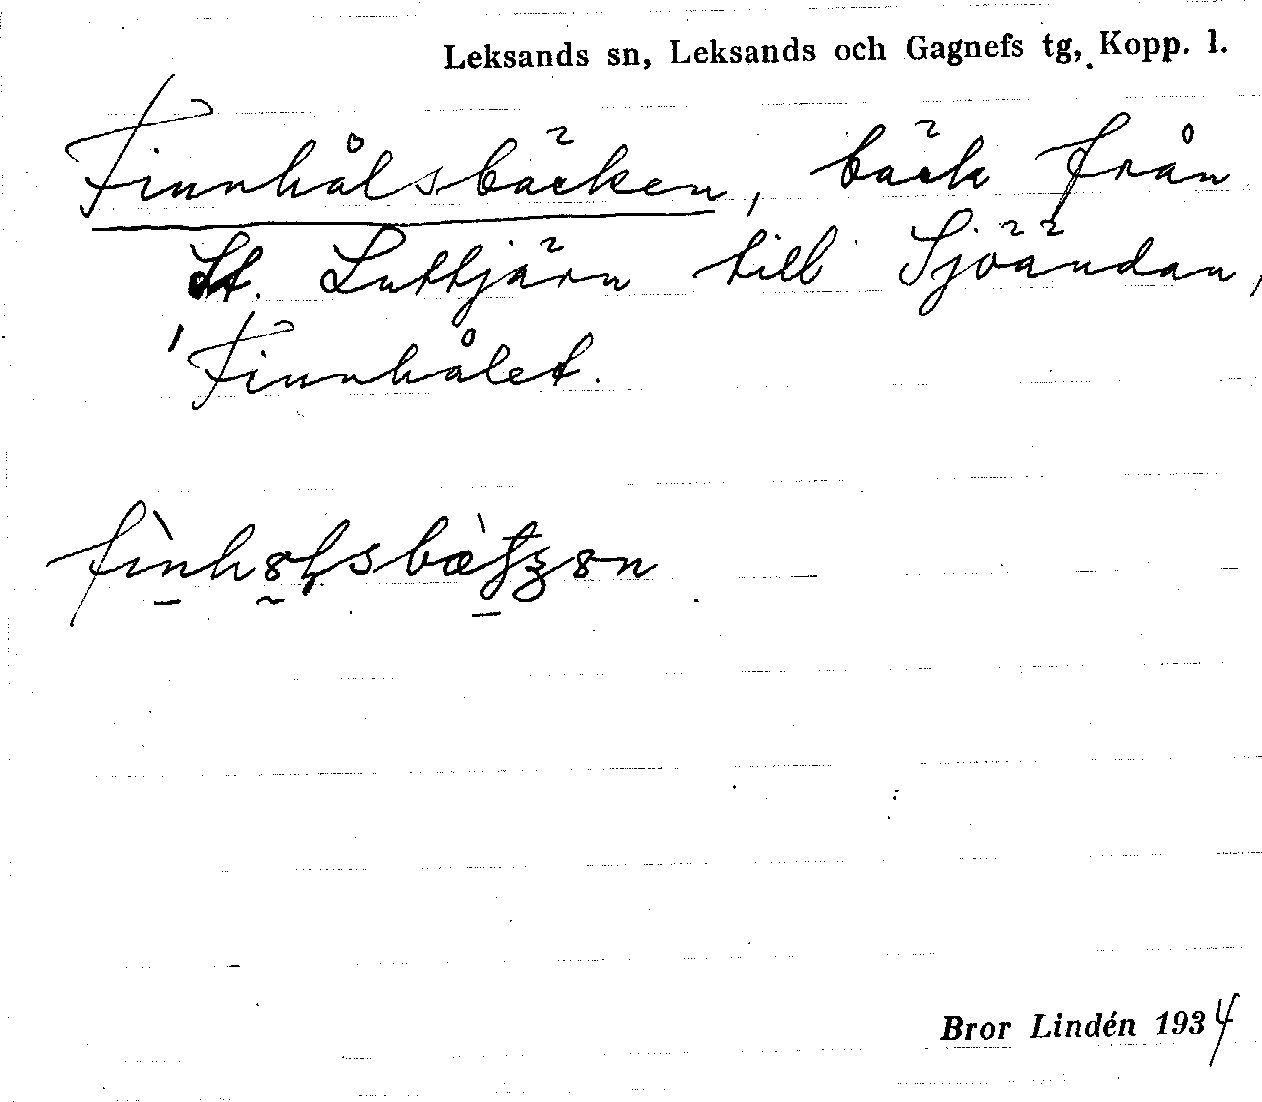 Leksands sn, Leksands och Gagnefs tg, Kopp. l.
Finnhålsbäcken, bäck från
St. Luttjärn till Sjöändan,
Finnhålet.
Bror Lindén 1934